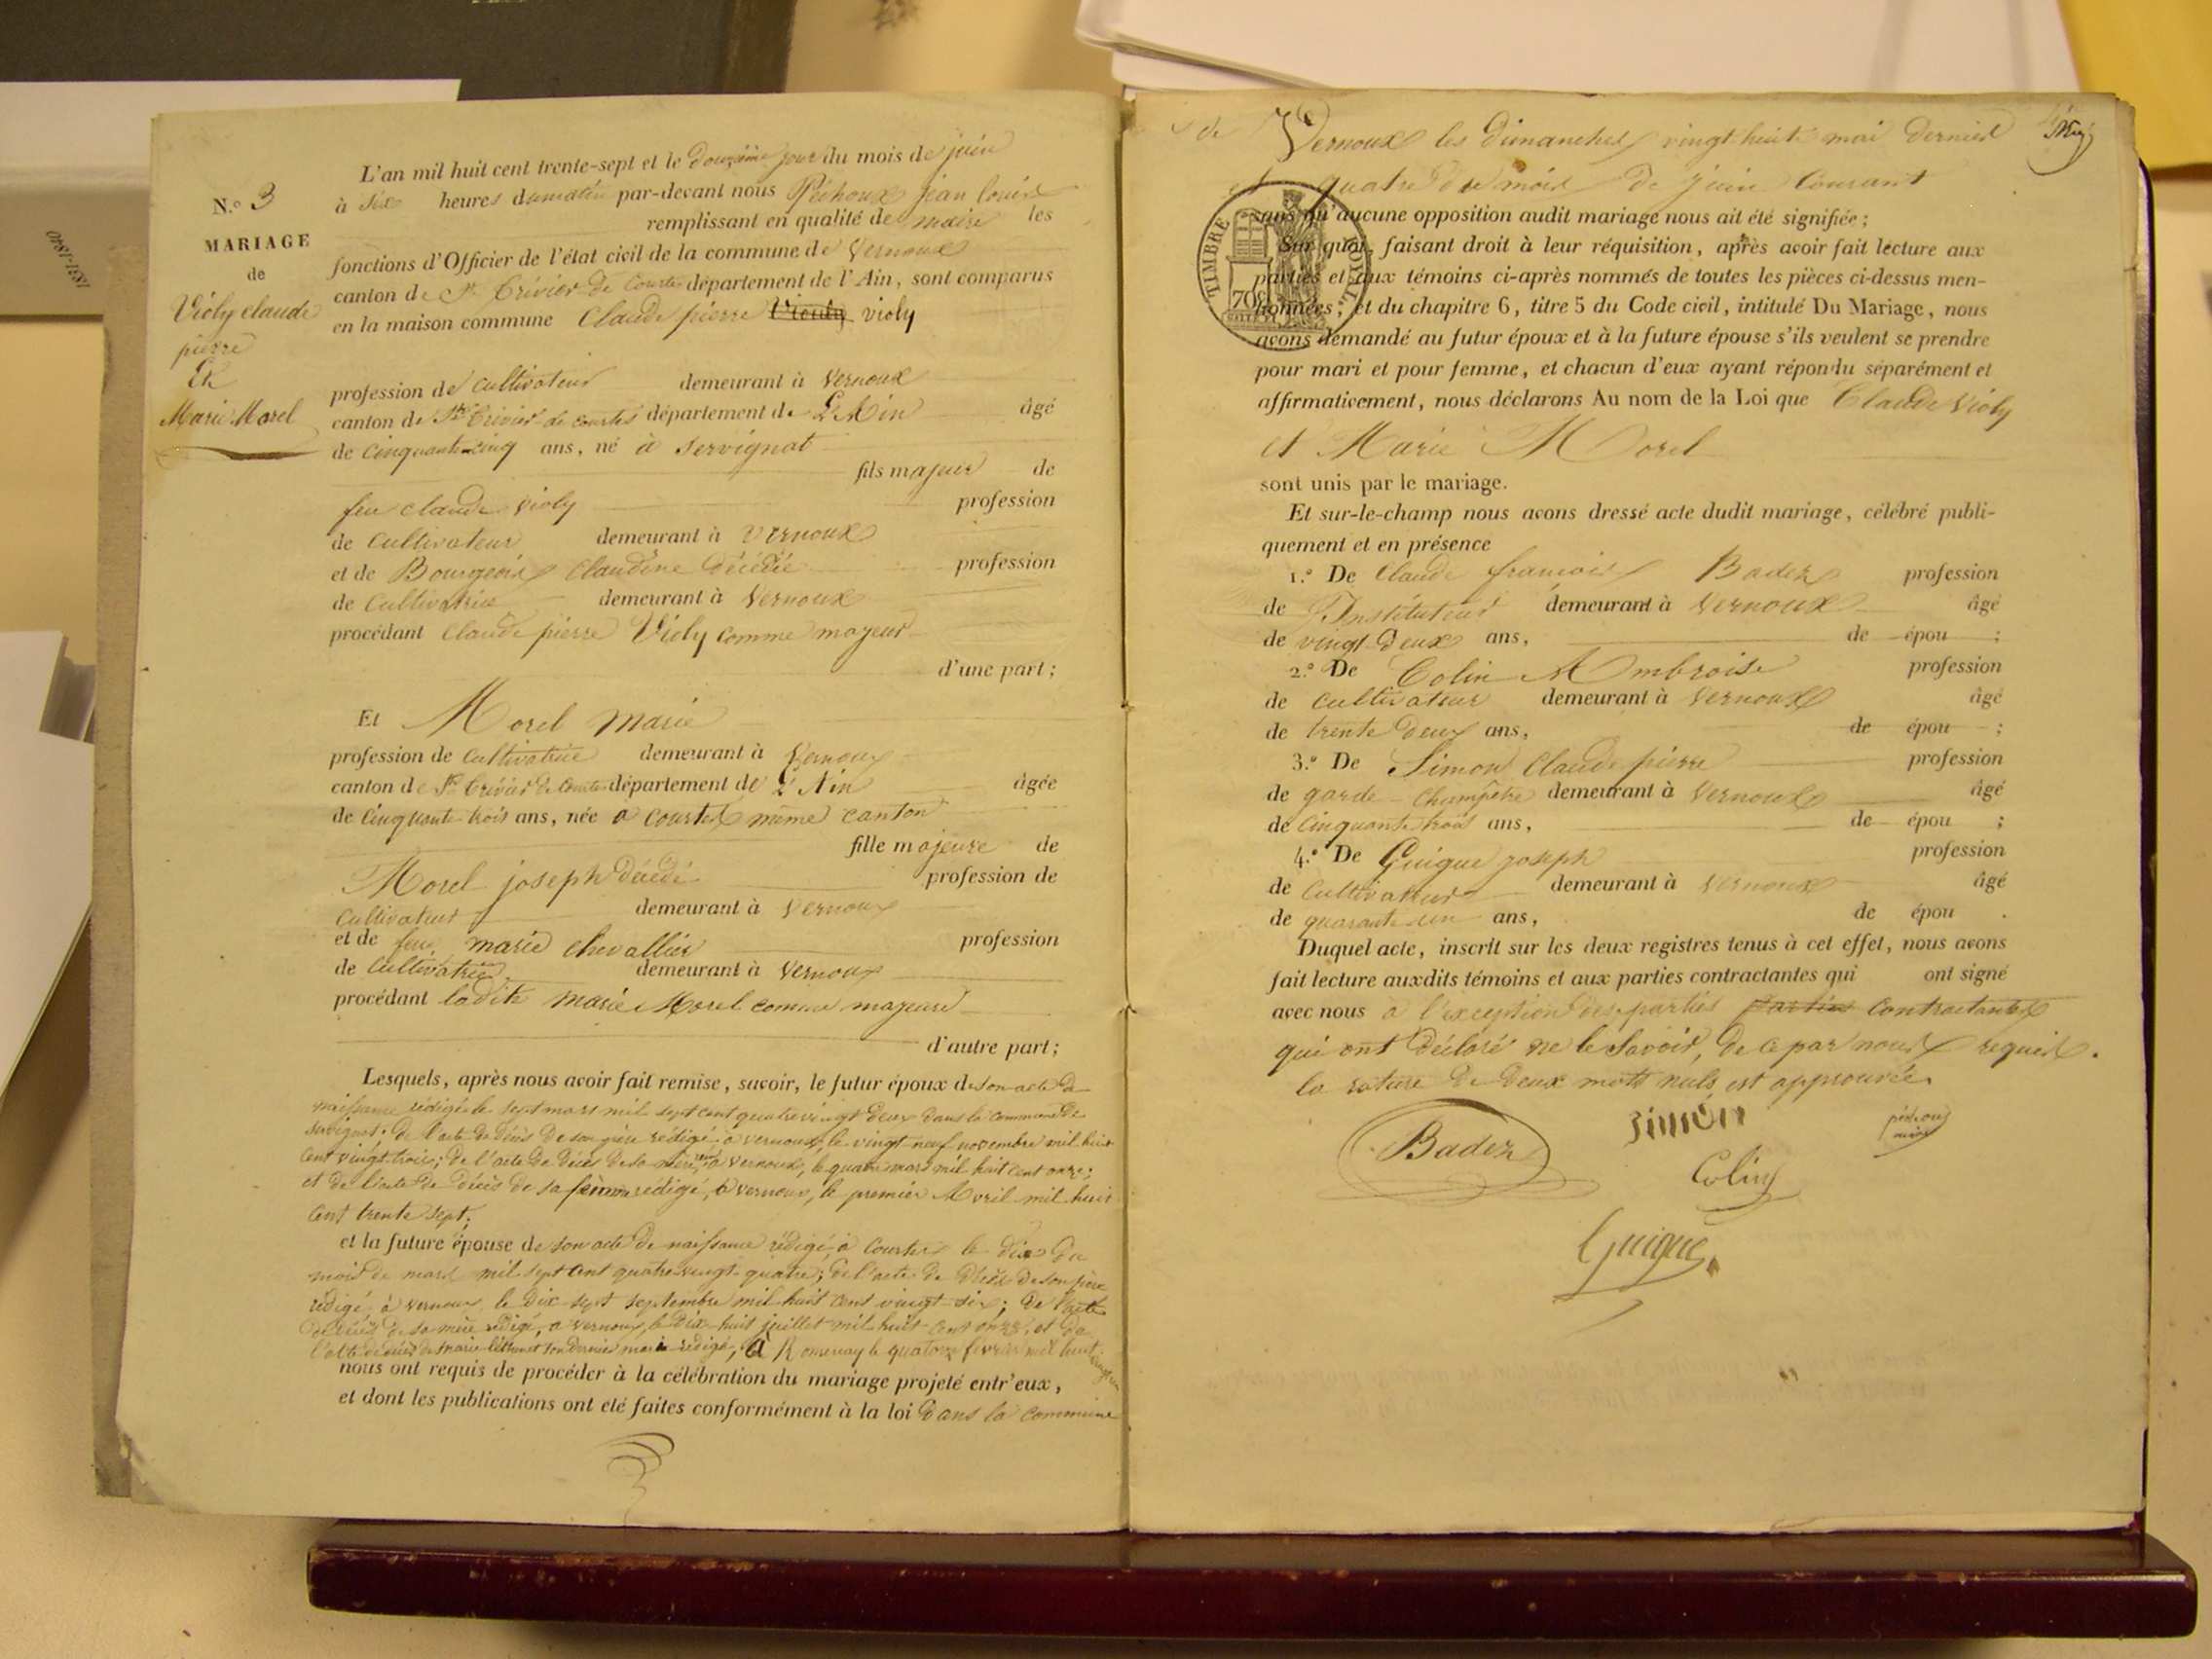 1831-1840
N.º 3
MARIAGE
de
Violy claude
pierre
Et
Marie Morel
L'an mil huit cent trente-sept et le douzième jour du mois de juin
à six heures du matin par-devant nous Péchoux jean louis
remplissant en qualité de maire les
fonctions d'Officier de l'état civil de la commune de Vernoux
canton de St. Trivier de Courtes département de l'Ain, sont comparus
en la maison commune Claude pierre violy
profession de cultivateur demeurant à Vernoux
canton de St. Trivier de courtes département de L'Ain âgé
de cinquante-cinq ans, né à Servignat
fils majeur de
feu claude violy profession
de cultivateur demeurant à Vernoux
et de Bourgeois Claudine décédée profession
de cultivatrice demeurant à Vernoux
procédant Claude pierre Violy comme majeur
d'une part;
Et Morel marie
profession de cultivatrice demeurant à Vernoux
canton de St. Trivier de Courtes département de L'Ain âgée
de cinquante trois ans, née à courtes même canton
fille majeure de
Morel joseph décédé profession de
cultivateur demeurant à Vernoux
et de feue marie chevallier profession
de cultivatrice demeurant à Vernoux
procédant ladite marie Morel comme majeure
d'autre part;
Lesquels, après nous avoir fait remise, savoir, le futur époux de son acte de
naissance rédigé le sept mars mil sept cent quatre vingt deux dans la commune de
Servignat; de l'acte de décès de son père rédigé à vernoux, le vingt neuf novembre mil huit
cent vingt trois; de l'acte de décès de sa mère, à vernoux, le quatre mars mil huit cent onze;
et de l'acte de décès de sa femme rédigé, à vernoux, le premier Avril mil huit
cent trente sept;
et la future épouse de son acte de naissance rédigé, à Courtes le dix du
mois de mars mil sept cent quatre vingt quatre; de l'acte de décès de son père
rédigé, à vernoux, le dix sept septembre mil huit cent vingt six; de l'acte
de décès de sa mère rédigé, à vernoux, le dix huit juillet mil huit cent onze, et de
l'acte de décès de son dernier mari rédigé, à Romenay le quatorze février mil huit
nous ont requis de procéder à la célébration du mariage projeté entr'eux,
et dont les publications ont été faites conformément à la loi dans la commune
de Vernoux les dimanches vingt huit mai dernier
et quatre du mois de juin Courant
TIMBRE ROYAL
70c
sans qu'aucune opposition audit mariage nous ait été signifiée;
Sur quoi, faisant droit à leur réquisition, après avoir fait lecture aux
parties et aux témoins ci-après nommés de toutes les pièces ci-dessus men-
tionnées; et du chapitre 6, titre 5 du Code civil, intitulé Du Mariage, nous
avons demandé au futur époux et à la future épouse s'ils veulent se prendre
pour mari et pour femme, et chacun d'eux ayant répondu séparément et
affirmativement, nous déclarons Au nom de la Loi que Claude Violy
et Marie Morel
sont unis par le mariage.
Et sur-le-champ nous avons dressé acte dudit mariage, célébré publi-
quement et en présence
1.º De Claude francois Badez profession
de Instituteur demeurant à Vernoux âgé
de vingt deux ans, de épou ;
2.º De Colin Ambroise profession
de cultivateur demeurant à Vernoux âgé
de trente deux ans, de épou ;
3.º De Simon Claude pierre profession
de garde-champêtre demeurant à Vernoux âgé
de cinquante trois ans, de épou ;
4.º De Guigue joseph profession
de cultivateur demeurant à Vernoux âgé
de quarante un ans, de épou .
Duquel acte, inscrit sur les deux registres tenus à cet effet, nous avons
fait lecture auxdits témoins et aux parties contractantes qui ont signé
avec nous à l'exception des parties parties contractantes
qui ont déclaré ne le Savoir, de ce par nous requis.
la rature de deux mots nuls est approuvée.
Badez
Simon
péchoux
maire
Colin
Guigue